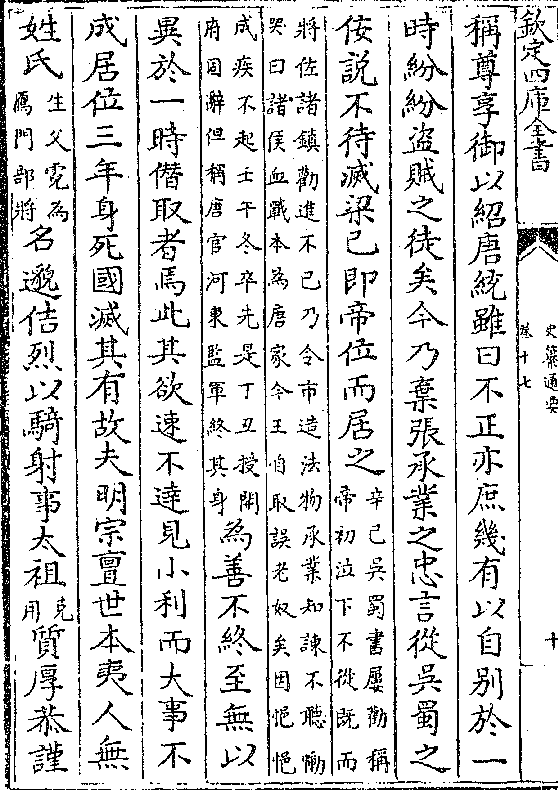 欽定四庫全書
史纂通要
卷十七
十
稱尊享御以紹唐統雖曰不正亦庶幾有以自别於一
時紛紛盗賊之徒矣今乃棄張承業之忠言從吳蜀之
佞説不待滅梁已即帝位而居之
辛已吳蜀書屢勸稱
帝初泣下不從既而
將佐諸鎮勸進不已乃令市造法物承業知諫不聽慟
哭曰諸侯血戰本為唐家今王自取誤老奴矣因悒悒
成疾不起壬午冬卒先是丁丑授開
府固辭但稱唐官河東監軍終其身
為善不終至無以
異於一時僭取者焉此其欲速不逹見小利而大事不
成居位三年身死國滅其有故夫明宗亶世本夷人無
姓氏
生父霓為
鴈門部將
名邈佶烈以騎射事太祖
克
用
質厚恭謹